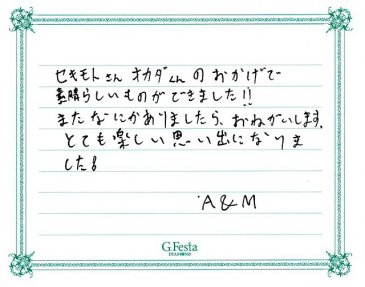 セキモトさん オカダくんのおかげで
素晴らしいものができました!!
またなにかありましたら、おねがいします。
とても楽しい思い出になりま
した!
A & M
G.Festa
DIAMOND